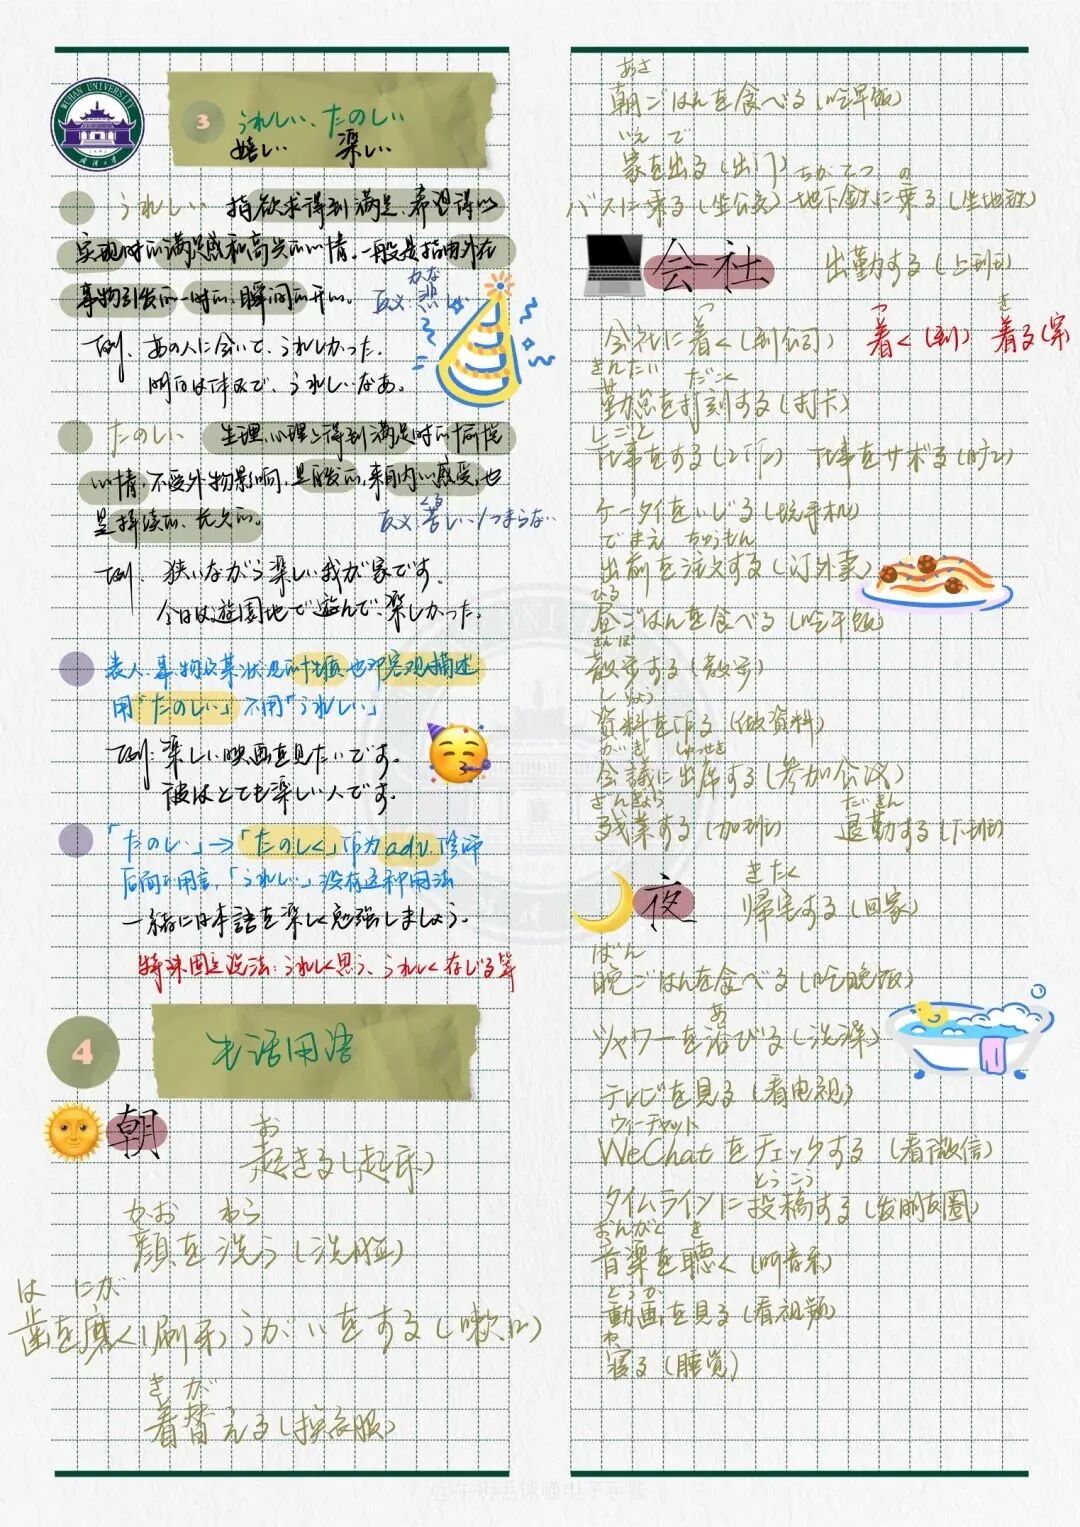 WUHAN UNIVERSITY
3
うれしい、たのしい
嬉しい 楽しい
うれしい 指欲求得到满足、希望得以
实现时的满足感和高兴的心情。一般是指由外在
事物引发的一时的、瞬间的开心。
かな
反义:悲しい
例、あの人に会いて、うれしかった。
明日は休みで、うれしいなあ。
たのしい 生理、心理上得到满足时的愉悦
心情,不受外物影响,是自发的,来自内心感受,也
是持续的、长久的。
くる
反义:苦しい/つまらない
例、狭いながら楽しい我が家です。
今日は遊園地で遊んで、楽しかった。
表人、事、物及某状况的性质,也即客观描述
用「たのしい」不用「うれしい」
例:楽しい映画を見たいです。
彼はとても楽しい人です。
「たのしい」→「たのしく」作为adv.修饰
后面的用言,「うれしい」没有这种用法
一緒に日本語を楽しく勉強しましょう。
特殊固定说法:うれしく思う、うれしく存じる等
4
生活用语
朝
お
起きる(起床)
かお わら
顔を洗う(洗脸)
は にが
歯を磨く(刷牙) うがいをする(漱口)
き が
着替える(换衣服)
あさ
朝ごはんを食べる(吃早饭)
いえ で
家を出る(出门)
ちかてつ の
バスに乗る(坐公交) 地下鉄に乗る(坐地铁)
会社 出勤する(上班)
つ
会社に着く(到公司)
つ き
着く(到) 着る(穿
きんたい だこく
勤怠を打刻する(打卡)
しごと
仕事をする(工作) 仕事をサボる
ケータイをいじる(玩手机)
でまえ ちゅうもん
出前を注文する(订外卖)
ひる
昼ごはんを食べる(吃午饭)
さんぽ
散歩する(散步)
しりょう
資料を作る(做资料)
かいぎ しゅっせき
会議に出席する(参加会议)
ざんぎょう たいきん
残業する(加班) 退勤する(下班)
夜
きたく
帰宅する(回家)
ばん
晩ごはんを食べる(吃晚饭)
あ
シャワーを浴びる(洗澡)
テレビを見る(看电视)
ウィーチャット
WeChatをチェックする(看微信)
とうこう
タイムラインに投稿する(发朋友圈)
おんがく き
音楽を聴く(听音乐)
どうが
動画を見る(看视频)
ね
寝る(睡觉)